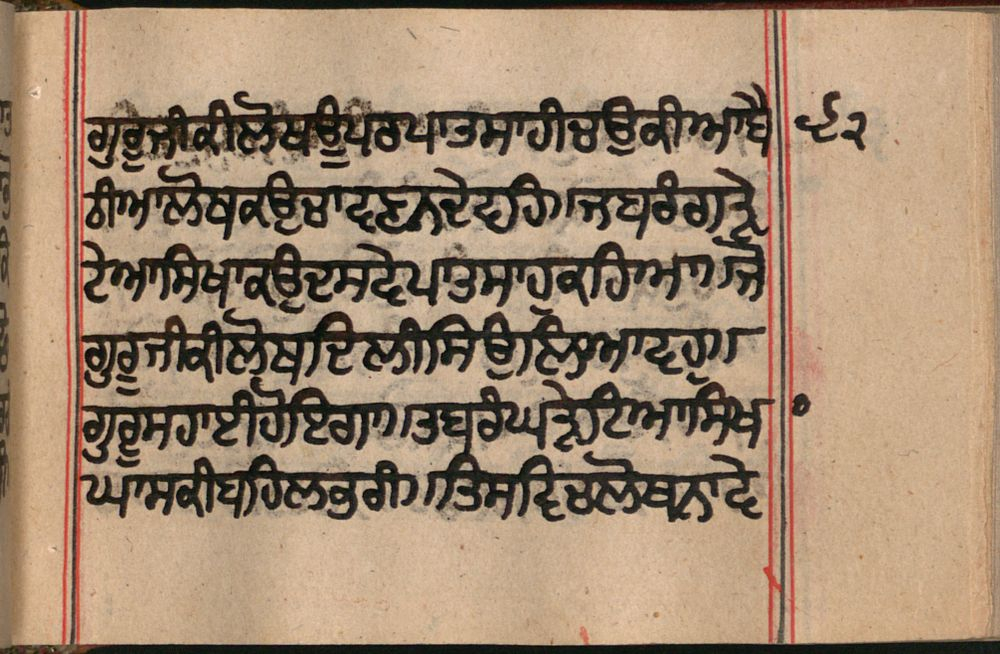 ਗੁਰੂ ਜੀ ਕੀ ਲੋਥ ਊਪਰ ਪਾਤਸਾਹੀ ਚਉਕੀਆ ਬੈ ੬੨
ਠੀਆ ਲੋਥ ਕਉ ਚਾਵਣ ਨ ਦੇਵਹਿ॥ ਜਬ ਰੰਗਤ੍ਰੇ
ਟੇਆ ਸਿਖਾ ਕਉ ਦਸਵੇ ਪਾਤਸਾਹ ਕਹਿਆ॥ ਜੋ
ਗੁਰੂ ਜੀ ਕੀ ਲੋਥ ਦਿਲੀ ਸਿਉ ਲਿਆਵਹੁ॥
ਗੁਰੂ ਸਹਾਈ ਹੋਇਗਾ॥ ਤਬ ਰੰਘਤ੍ਰੇਟਿਆ ਸਿਖ
ਘਾਸ ਕੀ ਬਹਿਲ ਭਰੀ॥ ਤਿਸ ਵਿਚ ਲੋਥ ਨਾਵੇ